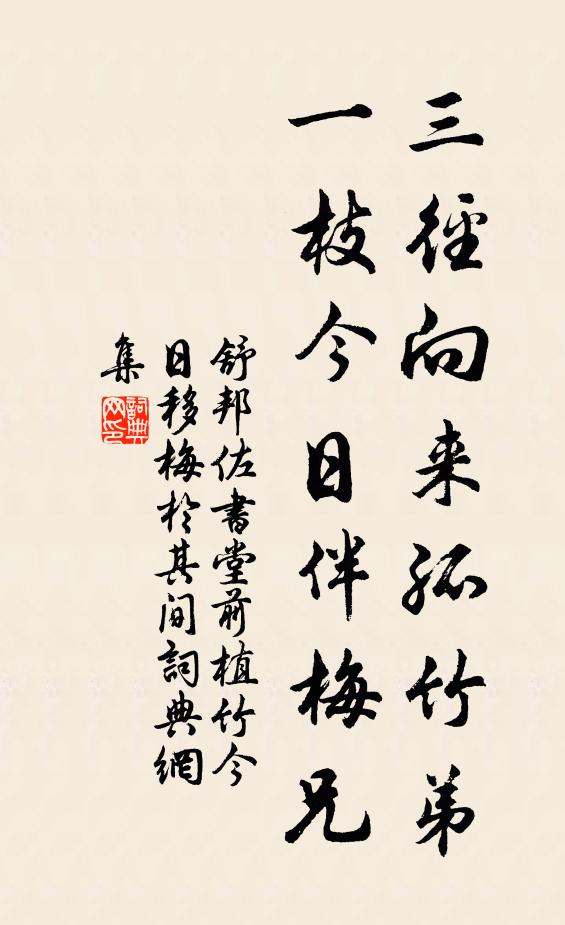 三徑向来孤竹弟
一枝今日伴梅兄
舒邦佐書堂前植竹今
日移梅於其间詞典網
集
詞典
网印